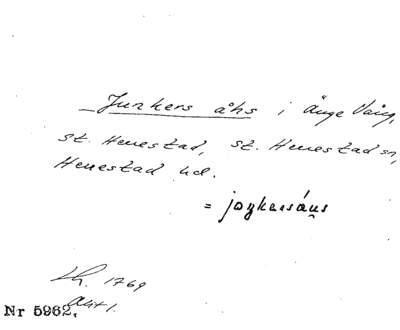 Junkers åhs i Änge Vång,
St. Herrestad, St. Herrestad sn,
Herrestad hd.
= joŋkersáus
Lh. 1769
Akt 1.
Nr 5962.